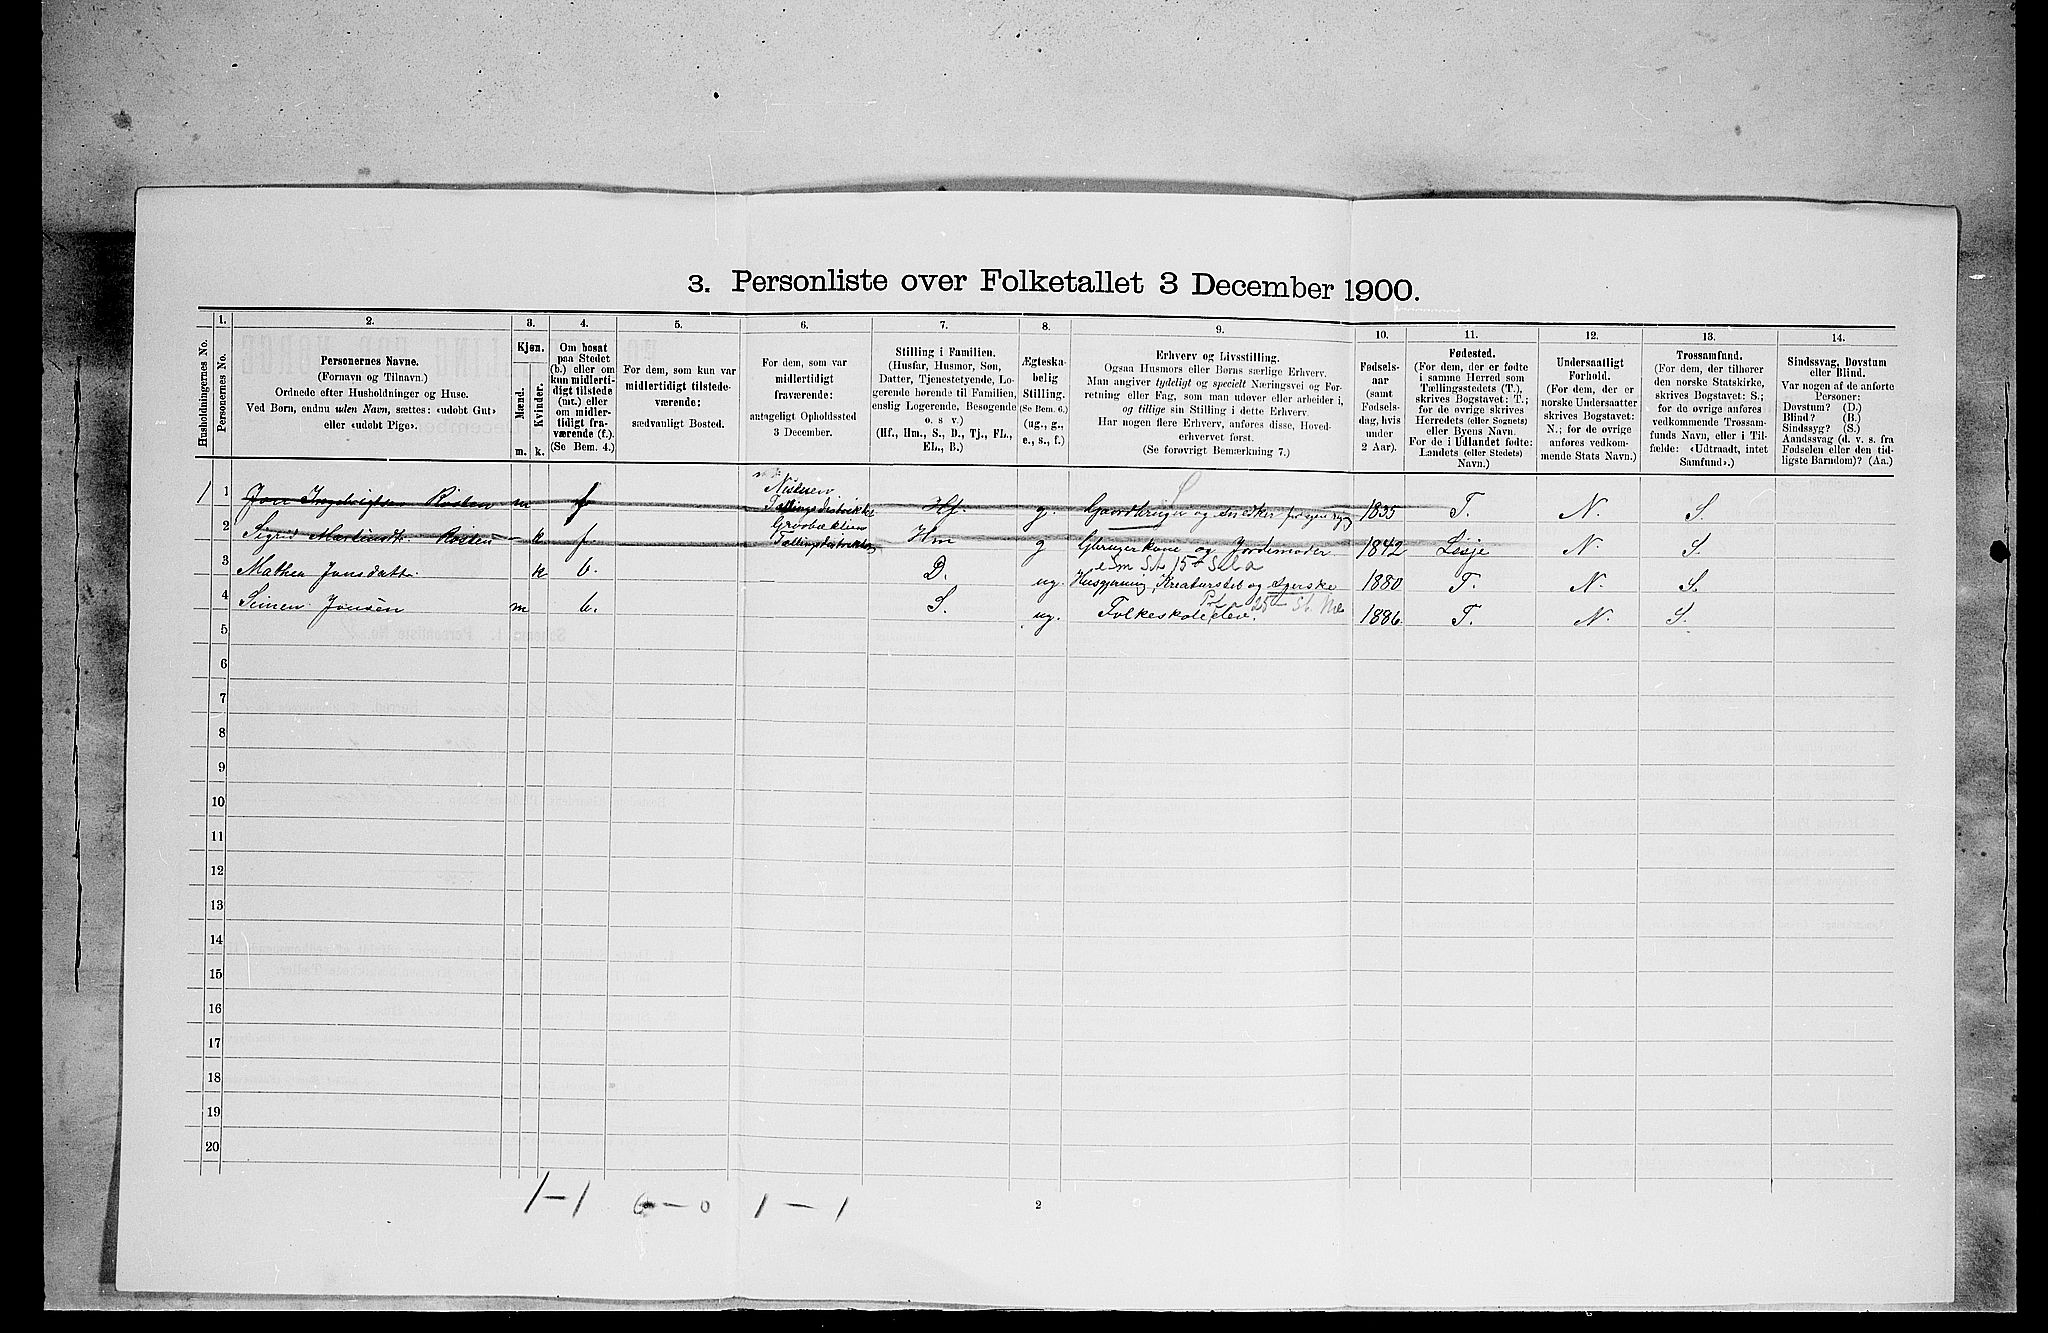 3. Personliste over Folketallet 3 December 1900.
1. 2. 3. 4. 5. 6. 7. 8. 9. 10. 11. 12. 13. 14.
Husholdningernes No.
Personernes No.
Personernes Navne.
(Fornavn og Tilnavn.)
Ordnede efter Husholdninger og Huse.
Ved Børn, endnu uden Navn, sættes: «udøbt Gut»
eller «udøbt Pige».
Kjøn.
Mænd.
Kvinder.
m. k.
Om bosat
paa Stedet
(b.) eller om
kun midlerti-
digt tilstede
(mt.) eller
om midler-
tidigt fra-
værende (f.).
(Se Bem. 4.)
For dem, som kun var
midlertidigt tilstede-
værende:
sædvanligt Bosted.
For dem, som var
midlertidigt
fraværende:
antageligt Opholdssted
3 December.
Stilling i Familien.
(Husfar, Husmor, Søn,
Datter, Tjenestetyende, Lo-
gerende hørende til Familien,
enslig Logerende, Besøgende
o. s v.)
(Hf., Hm., S., D., Tj., FL.,
EL., B.)
Ægteska-
belig
Stilling.
(Se Bem. 6.)
(ug., g.,
e., s., f.)
Erhverv og Livsstilling.
Ogsaa Husmors eller Børns særlige Erhverv.
Man angiver tydeligt og specielt Næringsvei og For-
retning eller Fag, som man udøver eller arbeider i,
og tillige sin Stilling i dette Erhverv.
Har nogen flere Erhverv, anføres disse, Hoved-
erhvervet først.
(Se forøvrigt Bemærkning 7.)
Fødsels-
aar
(samt
Fødsels-
dag, hvis
under
2 Aar).
Fødested.
(For dem, der er fødte
i samme Herred som
Tællingsstedets (T.),
skrives Bogstavet: T.;
for de øvrige skrives
Herredets (eller Sognets)
eller Byens Navn.
For de i Udlandet fødte:
Landets (eller Stedets)
Navn.)
Undersaatligt
Forhold.
(For dem, der er
norske Undersaatter
skrives Bogstavet:
N.; for de øvrige
anføres vedkom-
mende Stats Navn.)
Trossamfund.
(For dem, der tilhører
den norske Statskirke,
skrives Bogstavet: S.;
for de øvrige anføres
vedkommende Trossam-
funds Navn, eller i Til-
fælde: «Udtraadt, intet
Samfund».)
Sindssvag, Døvstum
eller Blind.
Var nogen af de anførte
Personer:
Døvstum? (D.)
Blind? (B.)
Sindssyg? (S.)
Aandssvag (d. v. s. fra
Fødselen eller den tid-
ligste Barndom)? (Aa.)
1 1 Jon m f Hf. g. Gaardbruger og Snedker 1835 T. N. S.
2 Sigrid k f. Hm g Gbrugerkone og Jordemoder 1842 Lesje N. S.
3 Mathea Jonsdatt. k b. D. ug. Husgjerning, Kreaturstel og 1880 T. N. S.
4 Simen Jonsen m b. S. ug. Folkeskoleelev. 1886. T. N. S.
5
6
7
8
9
10
11
12
13
14
15
16
17
18
19
20
1-1 0-0 1-1
2